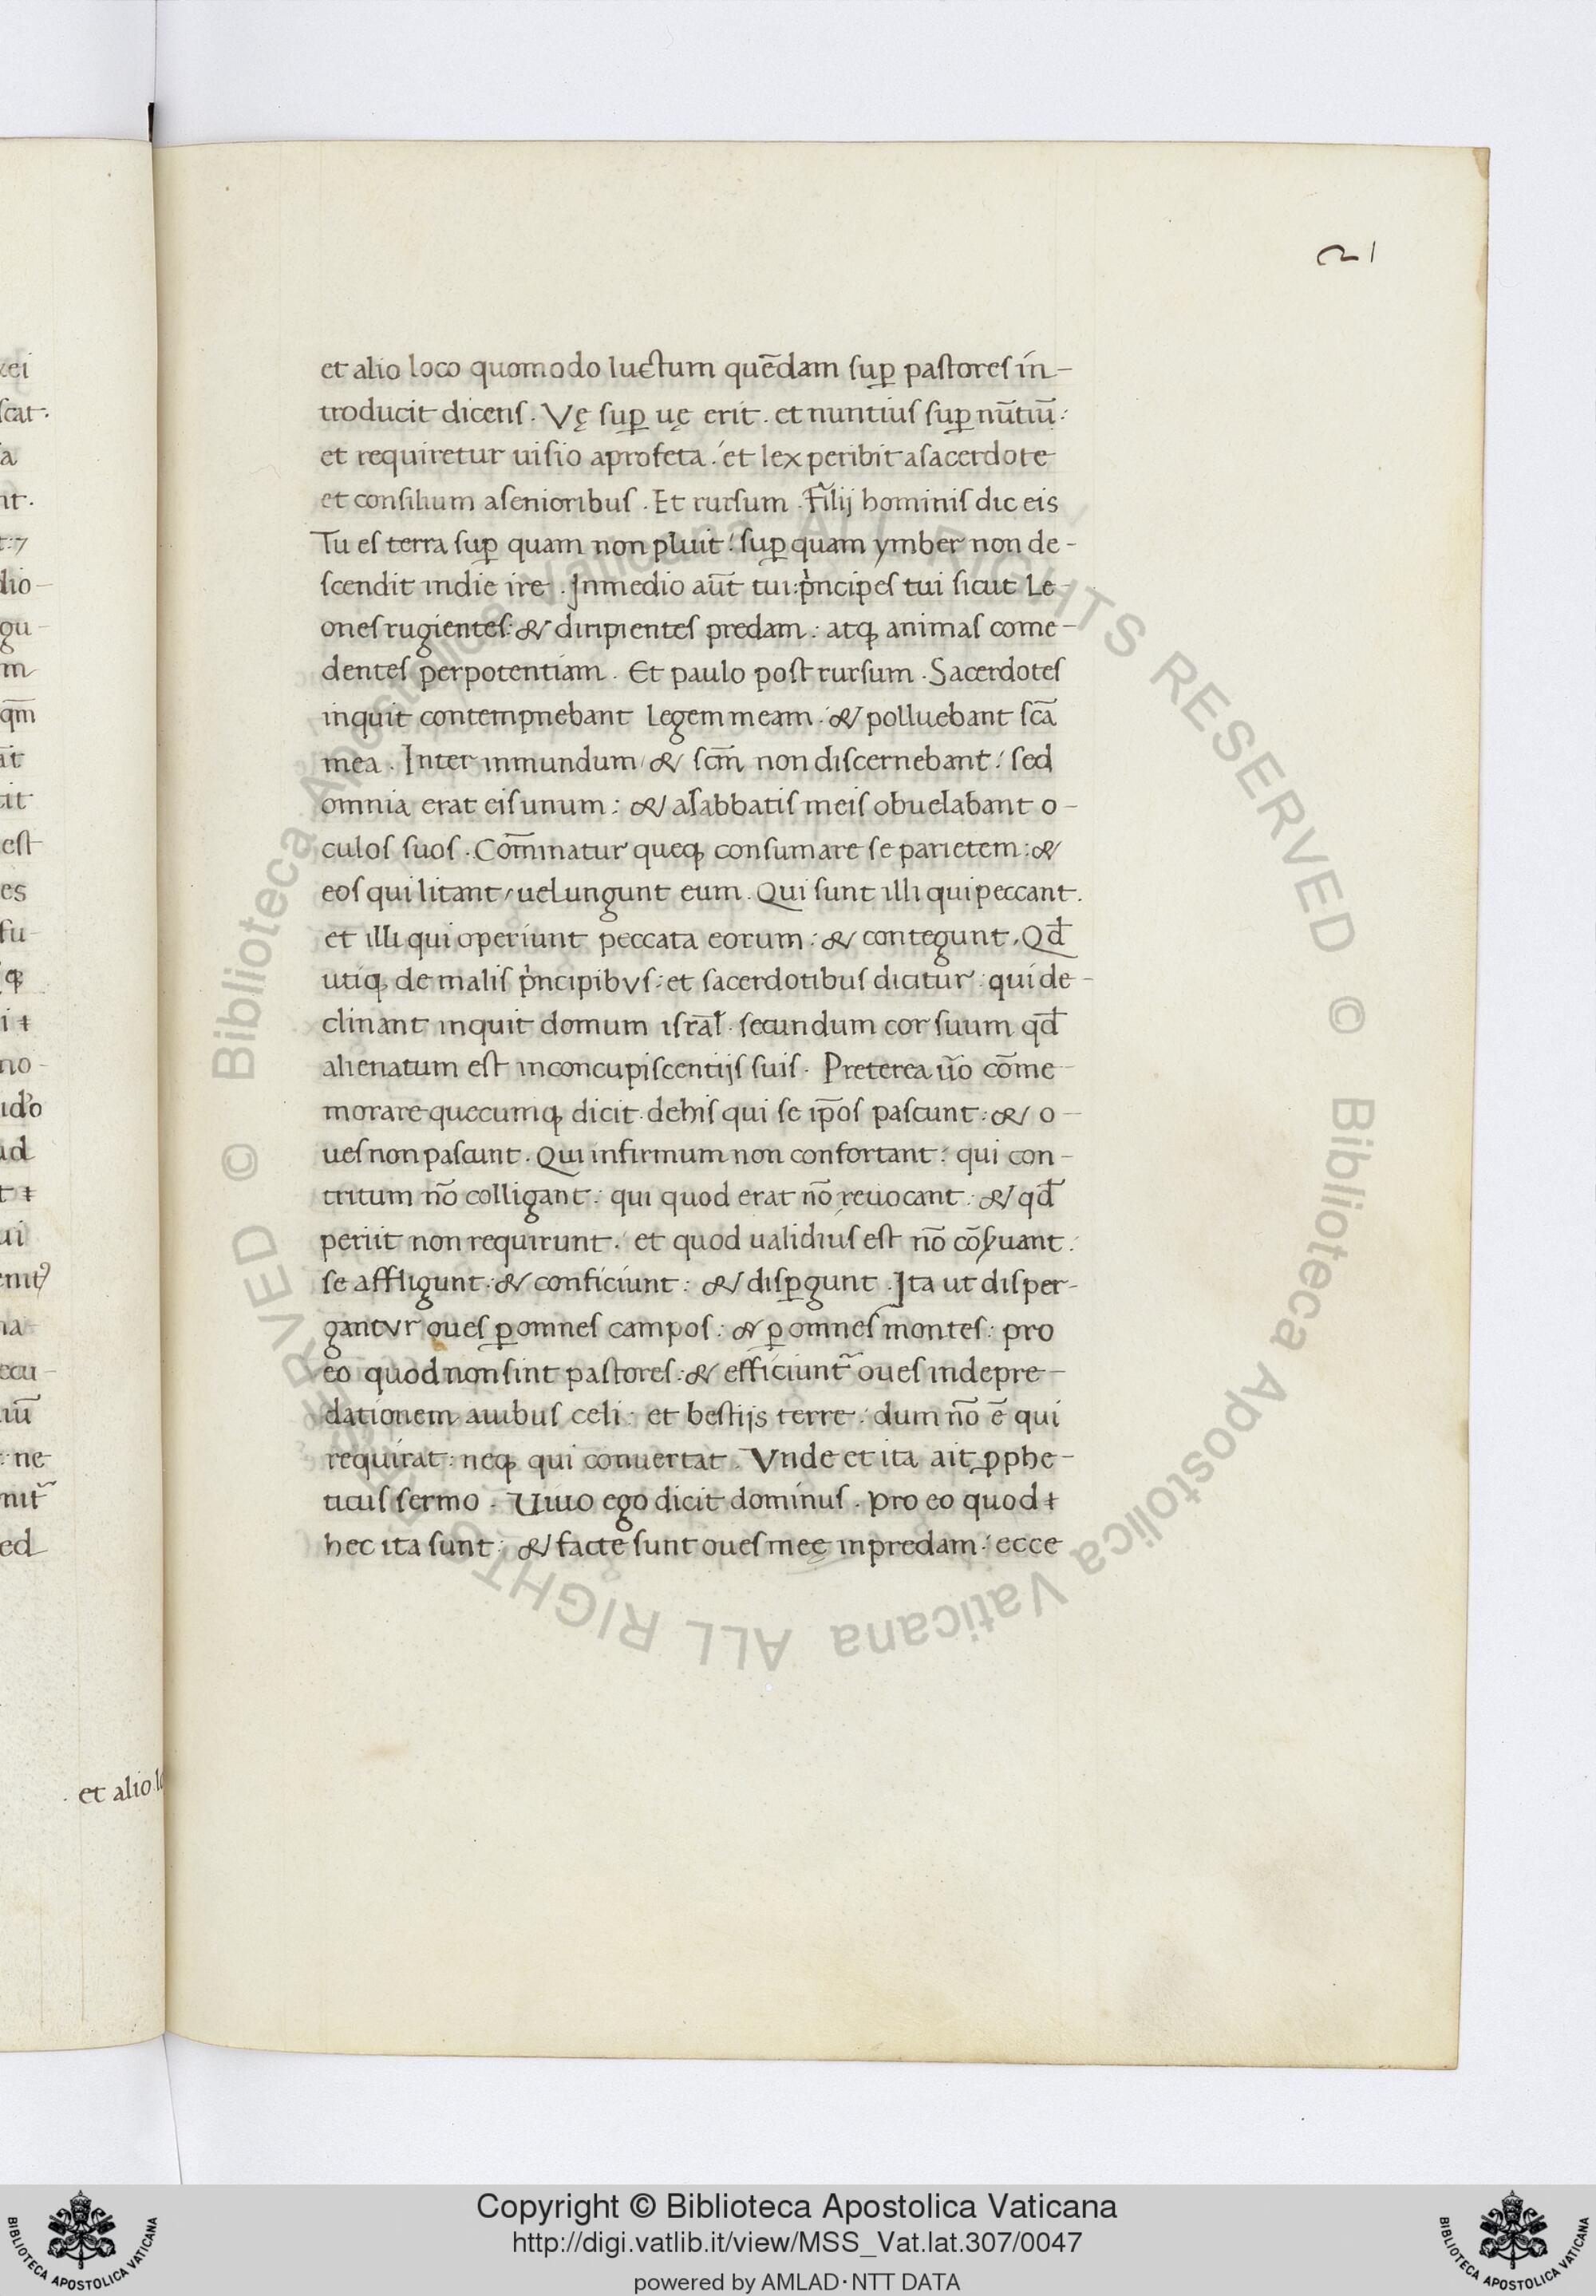 21
et alio loco quomodo luctum quē̄dam suꝑ pastores in-
troducit dicens. Vę suꝑ uę erit. et nuntius suꝑ nūtiū:
et requiretur uisio aprofeta: et lex peribit asacerdote
et consilium asenioribus. Et rursum. Filij hominis dic eis
Tu es terra suꝑ quam non pluit: suꝑ quam ymber non de-
scendit indie ire. Inmedio aūt tui: pͥncipes tui sicut Le-
ones rugientes: & diripientes predam: atqꝫ animas come-
dentes perpotentiam. Et paulo post rursum. Sacerdotes
inquit contempnebant Legem meam: & polluebant scā
mea. Inter inmundum & scm̄ non discernebant: sed
omnia erat eis unum: & asabbatis meis obuelabant o-
culos suos. Com̄inatur queqꝫ consumare se parietem: &
eos qui litant, uel ungunt eum. Qui sunt illi qui peccant.
et illi qui operiunt peccata eorum: & contegunt. Qd̄
utiqꝫ de malis pͥncipibus: et sacerdotibus dicitur: qui de-
clinant inquit domum isrāl. secundum cor suum qd̄
alienatum est inconcupiscentijs suis. Preterea ūo cōme-
morare quecumqꝫ dicit. dehis qui se ip̄os pascunt: & o-
ues non pascunt. Qui infirmum non confortant: qui con-
tritum nō colligant: qui quod erat nō reuocant: & qd̄
periit non requirunt: et quod ualidius est nō cōẜuant:
se affligunt: & conficiunt: & disꝑgunt. Ita ut disper-
gantur oues ꝑ omnes campos: & ꝑ omnes montes: pro
eo quod non sint pastores: & efficiunt᷑ oues indepre-
dationem auibus celi: et bestijs terre: dum nō ē qui
requirat: neqꝫ qui conuertat. Vnde et ita ait ꝓphe-
ticus sermo. Uiuo ego dicit dominus. pro eo quod
hec ita sunt: & facte sunt oues meę inpredam: ecce
. et alio lo
Copyright © Biblioteca Apostolica Vaticana
http://digi.vatlib.it/view/MSS_Vat.lat.307/0047
powered by AMLAD·NTT DATA
BIBLIOTECA APOSTOLICA VATICANA
BIBLIOTECA APOSTOLICA VATICANA